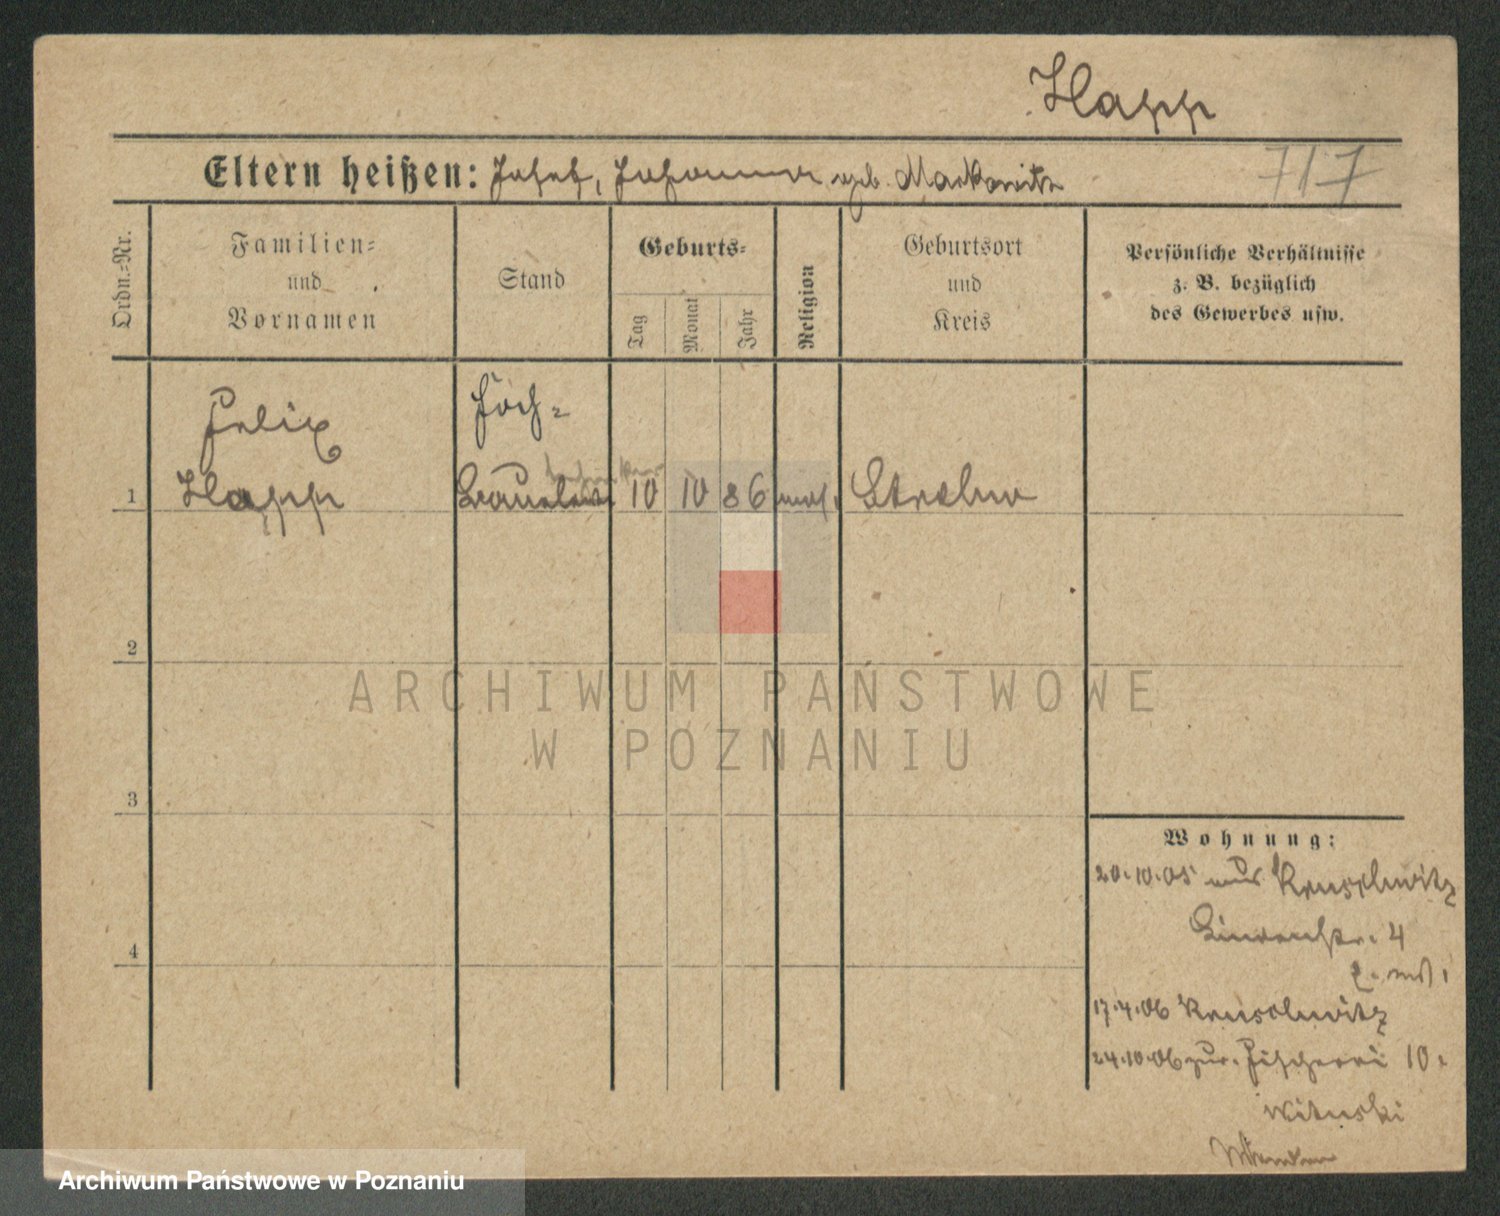 Happ
Eltern heißen: Josef, Johanna geb. Markowitz
717
Ordn.-Nr.
Familien-
und
Vornamen
Stand
Geburts-
Tag
Monat
Jahr
Religion
Geburtsort
und
Kreis
Persönliche Verhältnisse
z. B. bezüglich
des Gewerbes usw.
Felix
Happ
1
10 10 86 mos.
2
3
4
Wohnung:
20.10.05 aus Kruschwitz
4
17.4.06 Kruschwitz
24.10.06 zur. Fischerei 10.
Wituski
ARCHIWUM PAŃSTWOWE
W POZNANIU
Archiwum Państwowe w Poznaniu